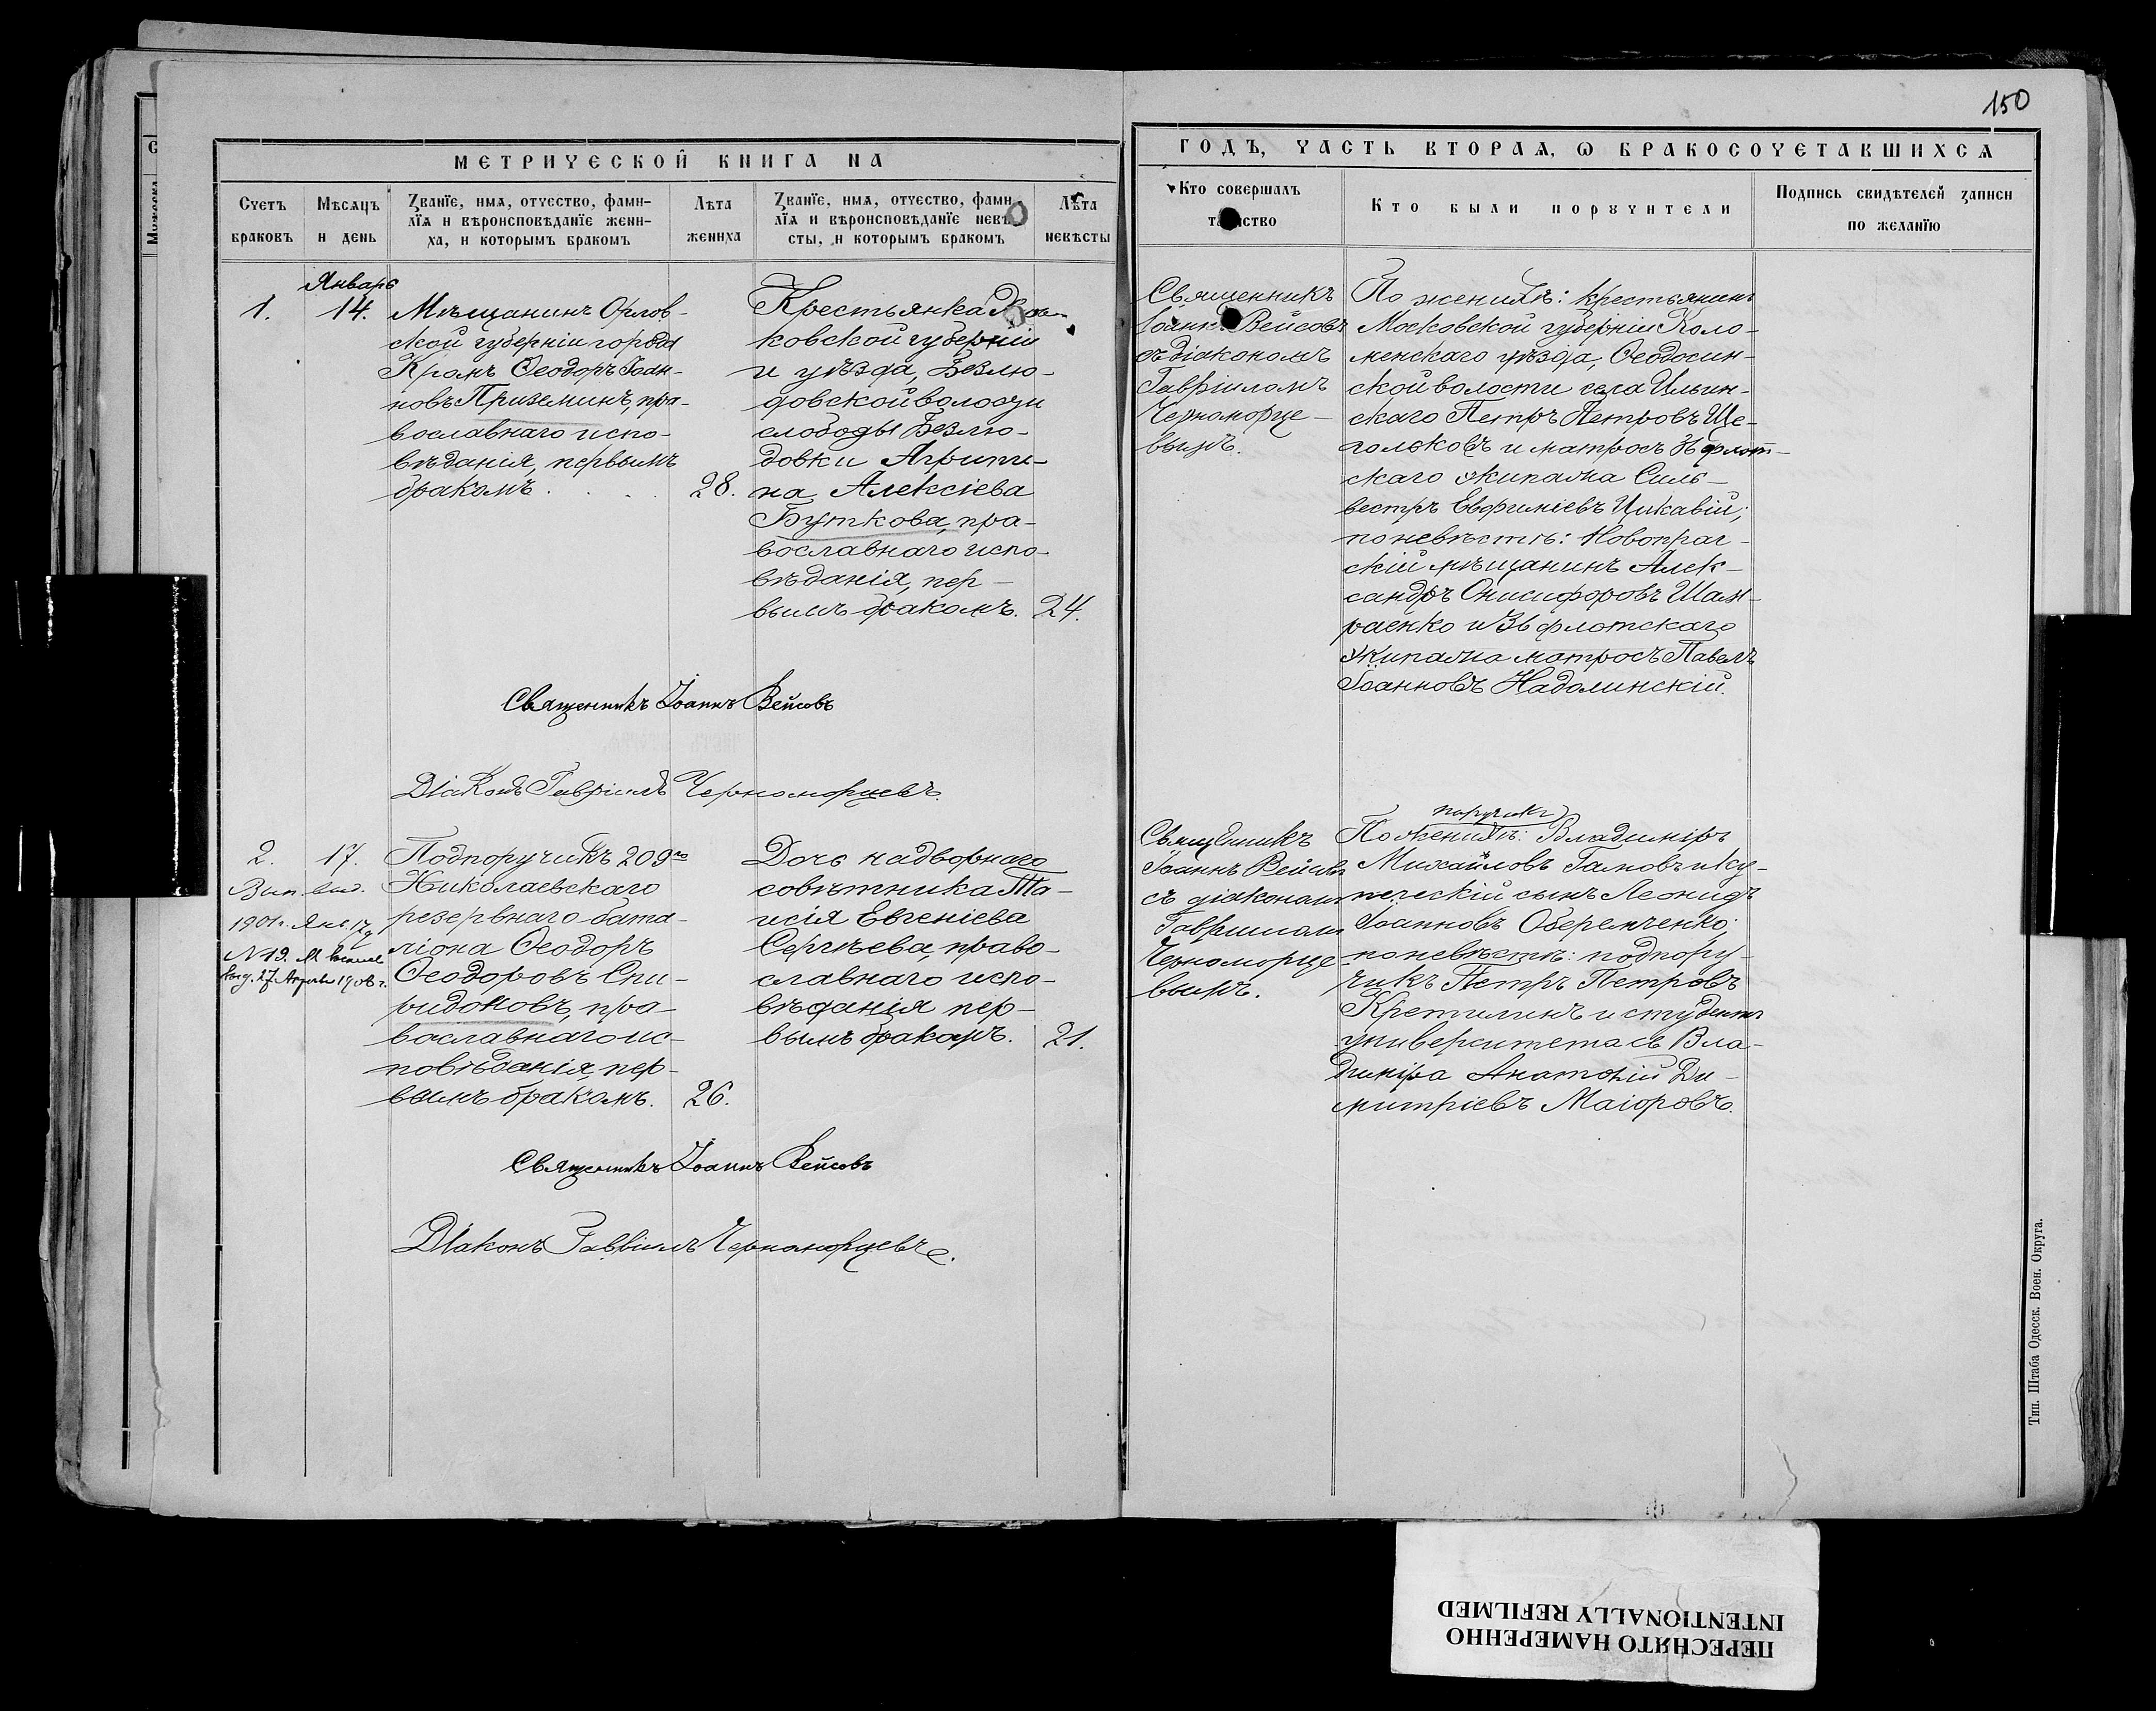 150
МЕТРИЧЕСКОЙ КНИГА НА
ГОДЪ, ЧАСТЬ ВТОРАЯ, Ѡ БРАКОСОЧЕТАВШИХСЯ
Счетъ браковъ
Мѣсяцъ и день
Званїе, имя, отчество, фами-
лїя и вѣроисповѣданїе жени-
ха, и которымъ бракомъ
Лѣта жениха
Званїе, имя, отчество, фами-
лїя и вѣроисповѣданїе невѣ-
сты, и которымъ бракомъ
Лѣта невѣсты
Кто совершалъ
таинство
Кто были поручители
Подпись свидѣтелей записи
по желанїю
Январь
1.
14.
Мѣщанинъ Орлов-
ской губерніи города
Кромъ Ѳеодоръ Іоан-
новъ Приземинъ, пра-
вославнаго испо-
вѣданія, первымъ
бракомъ
28.
Крестьянка
ковской губерніи
и уѣзда, Безлю-
довской волости
слободы Безлю-
довки Агрипи-
на Алексіева
Буткова, пра-
вославнаго испо-
вѣданія, пер-
вымъ бракомъ.
24.
Священникъ
Іоаннъ Вейсовъ
съ діакономъ
Гавріиломъ
Черноморце-
вымъ.
По женихѣ: крестьянинъ
Московской губерніи Коло-
менскаго уѣзда, Ѳеодосин-
ской волости села Ильин-
скаго Петръ Петровъ Ще-
гольковъ и матросъ 36 флот-
скаго экипажа Силь-
вестръ Евфиміевъ Цикавій;
по невѣстѣ: Новопраг-
скій мѣщанинъ Алек-
сандръ Онисифоровъ Шам-
раенко и 36 флотскаго
экипажа матросъ Павелъ
Іоанновъ Надолинскій.
Священникъ Іоаннъ Вейсовъ
Діаконъ Гавріилъ Черноморцевъ.
2.
17.
Вып. выд.
1901 г. Янв. 17 д
N 19.
Выд. 27 Апрѣля 1906 г.
Подпоручикъ 209го
Николаевскаго
резервнаго бата-
ліона Ѳеодоръ
Ѳеодоровъ Спи-
ридоновъ, пра-
вославнаго ис-
повѣданія, пер-
вымъ бракомъ.
26.
Дочь надворнаго
совѣтника Та-
исія Евгеніева
Сергѣева, право-
славнаго испо-
вѣданія пер-
вымъ бракомъ.
21.
Священникъ
Іоаннъ Вейсовъ
съ діакономъ
Гавріиломъ
Черноморце-
вымъ.
поручикъ
По женихѣ: Владиміръ
Михайловъ Гамовъ и ку-
печескій сынъ Леонидъ
Іоанновъ Оберемченко;
по невѣстѣ: подпору-
чикъ Петръ Петровъ
Кретилинъ и студентъ
университета св. Вла-
диміра Анатолій Ди-
митріевъ Маіоровъ.
Священникъ Іоаннъ Вейсовъ
Діаконъ Гавріилъ Черноморцевъ.
Тип. Штаба Одесск. Воен. Округа.
ПЕРЕСНЯТО НАМЕРЕННО
INTENTIONALLY REFILMED